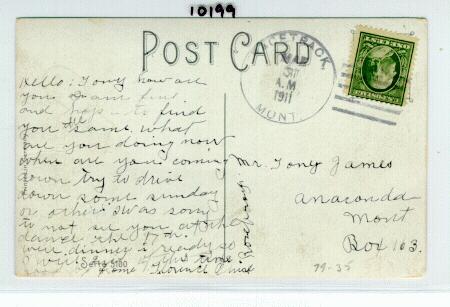 10199
POST CARD
MAR
30
A.M
1911
MONT.
Hello: Tony how are
you I am fine
and hope to find
you same. what
are you doing now
when are you coming
down try to drive
down some sunday
or other I was sorry
to not see you at the
dance
well dinner is ready so
I will this time
from Florence
Mr. Tony James
Anaconda
Mont
Box 163.
79-35
Series 5100